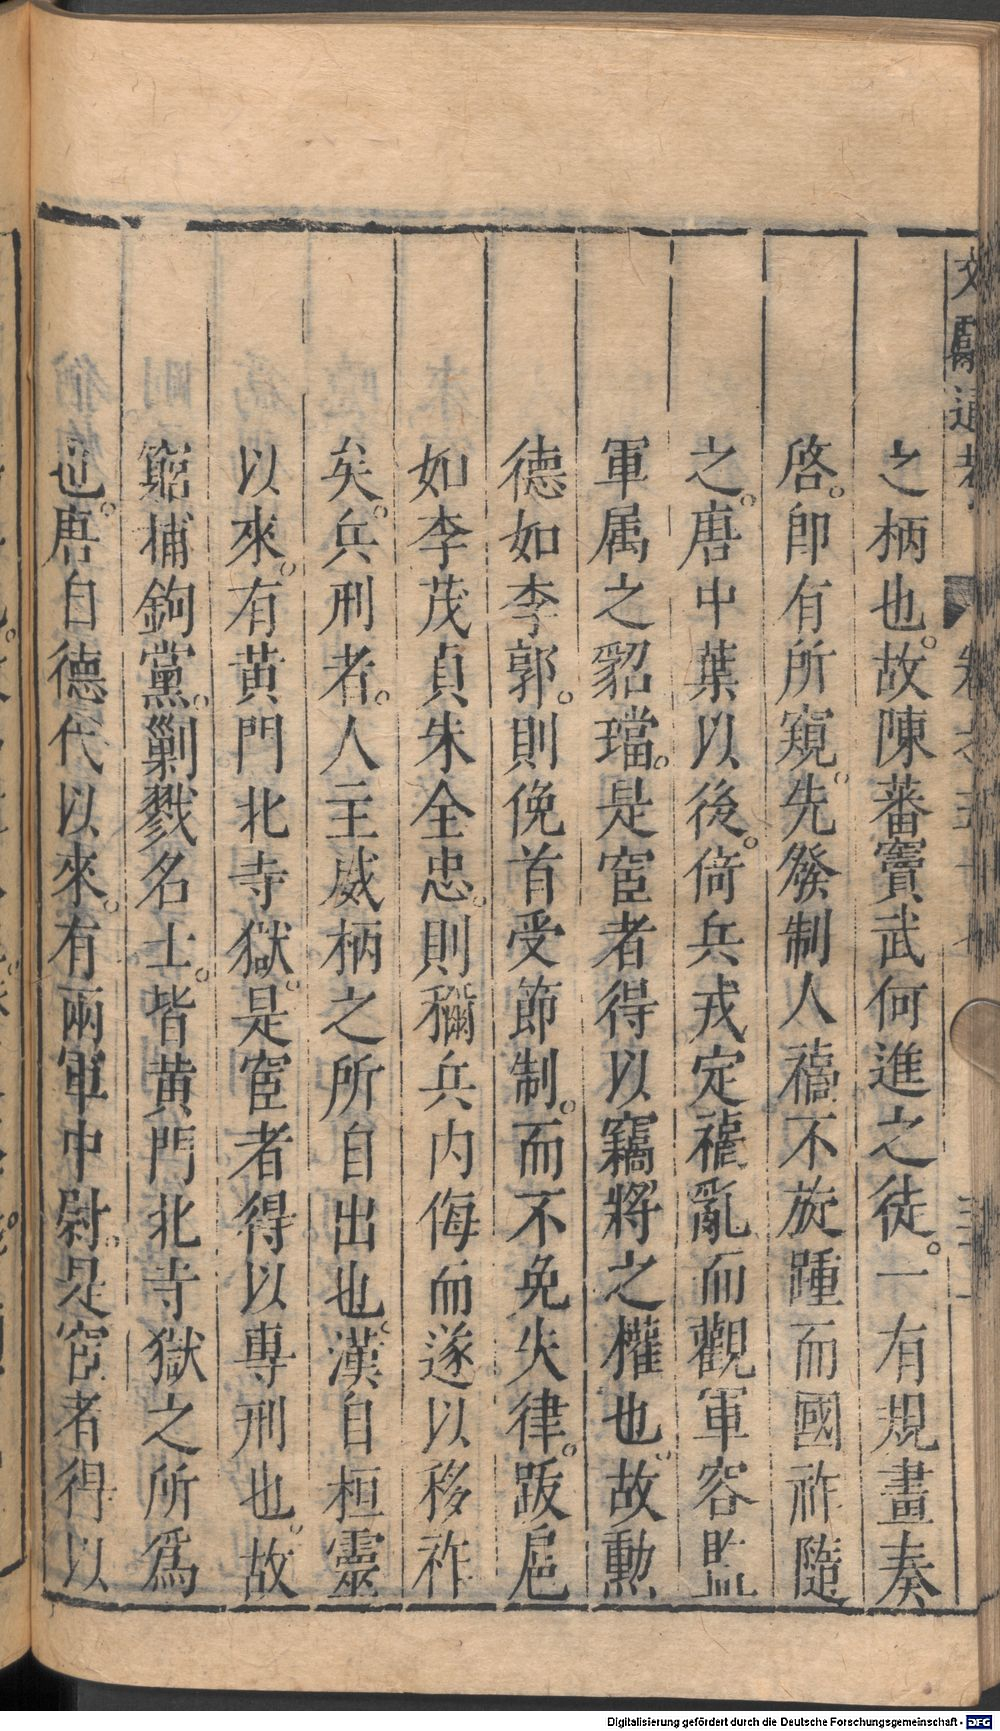 之柄也。故陳蕃竇武何進之徒。一有規畫奏
啓。卽有所窺。先發制人禍不旋踵而國祚隨
之。唐中葉以後。倚兵戎定禍亂而觀軍容監
軍属之貂璫。是宦者得以竊將之權也。故勳
德如李郭。則俛首受節制。而不免失律。跋扈
如李茂貞朱全忠。則稱兵内侮而遂以移祚
矣。兵刑者。人主威柄之所自出也。漢自桓靈
以來。有黄門北寺獄。是宦者得以專刑也。故
窮捕鉤黨。剿戮名士。皆黄門北寺獄之所爲
也。唐自德代以來。有兩軍中尉。是宦者得以
Digitalisierung gefördert durch die Deutsche Forschungsgemeinschaft - DFG